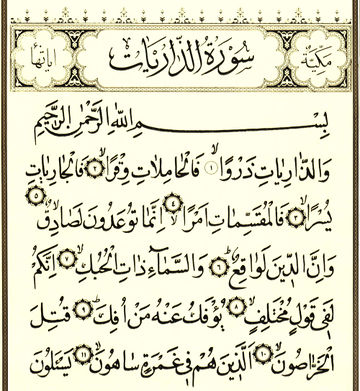 مكية سورة الذاريات آياتها
بِسْمِ اللّٰهِ الرَّحْمٰنِ الرَّحِيمِ
وَالذَّارِيَاتِ ذَرْوًا ۝١ فَالْحَامِلَاتِ وِقْرًا ۝٢ فَالْجَارِيَاتِ
يُسْرًا ۝٣ فَالْمُقَسِّمَاتِ اَمْرًا ۝٤ اِنَّمَا تُوعَدُونَ لَصَادِقٌ ۝٥
وَاِنَّ الدّ۪ينَ لَوَاقِعٌ ۝٦ وَالسَّمَٓاءِ ذَاتِ الْحُبُكِ ۝٧ اِنَّكُمْ
لَف۪ي قَوْلٍ مُخْتَلِفٍ ۝٨ يُؤْفَكُ عَنْهُ مَنْ اُفِكَ ۝٩ قُتِلَ
الْخَرَّاصُونَ ۝١٠ اَلَّذ۪ينَ هُمْ ف۪ي غَمْرَةٍ سَاهُونَ ۝١١ يَسْـَٔلُونَ